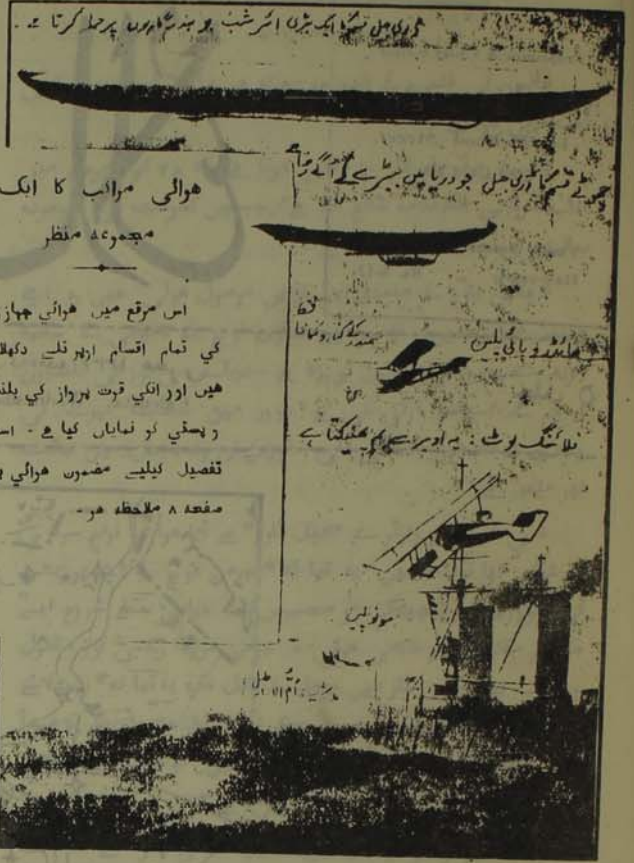 ایک بڑی ائر شپ جو بندرگاہوں پر حملہ کرتا ہے -
چھوٹے قسم کا جو دریا میں بیڑے کے آگے
هوائي مراکب کا ایک
مجموعه منظر
اس مرقع میں هوائي جهاز
کي تمام اقسام اوپر تلے دکھلا
هیں اور انکي قوت پرواز کي بلند
و پستي کو نمایاں کیا ہے - اس
تفصیل کیلیے مضمون هوائي
صفحه ۸ ملاحظه هو -
هائڈرو بائي پلین
فلائنگ بوٹ : یہ اوپر سے بم پھینکتا ہے
مونو پلین